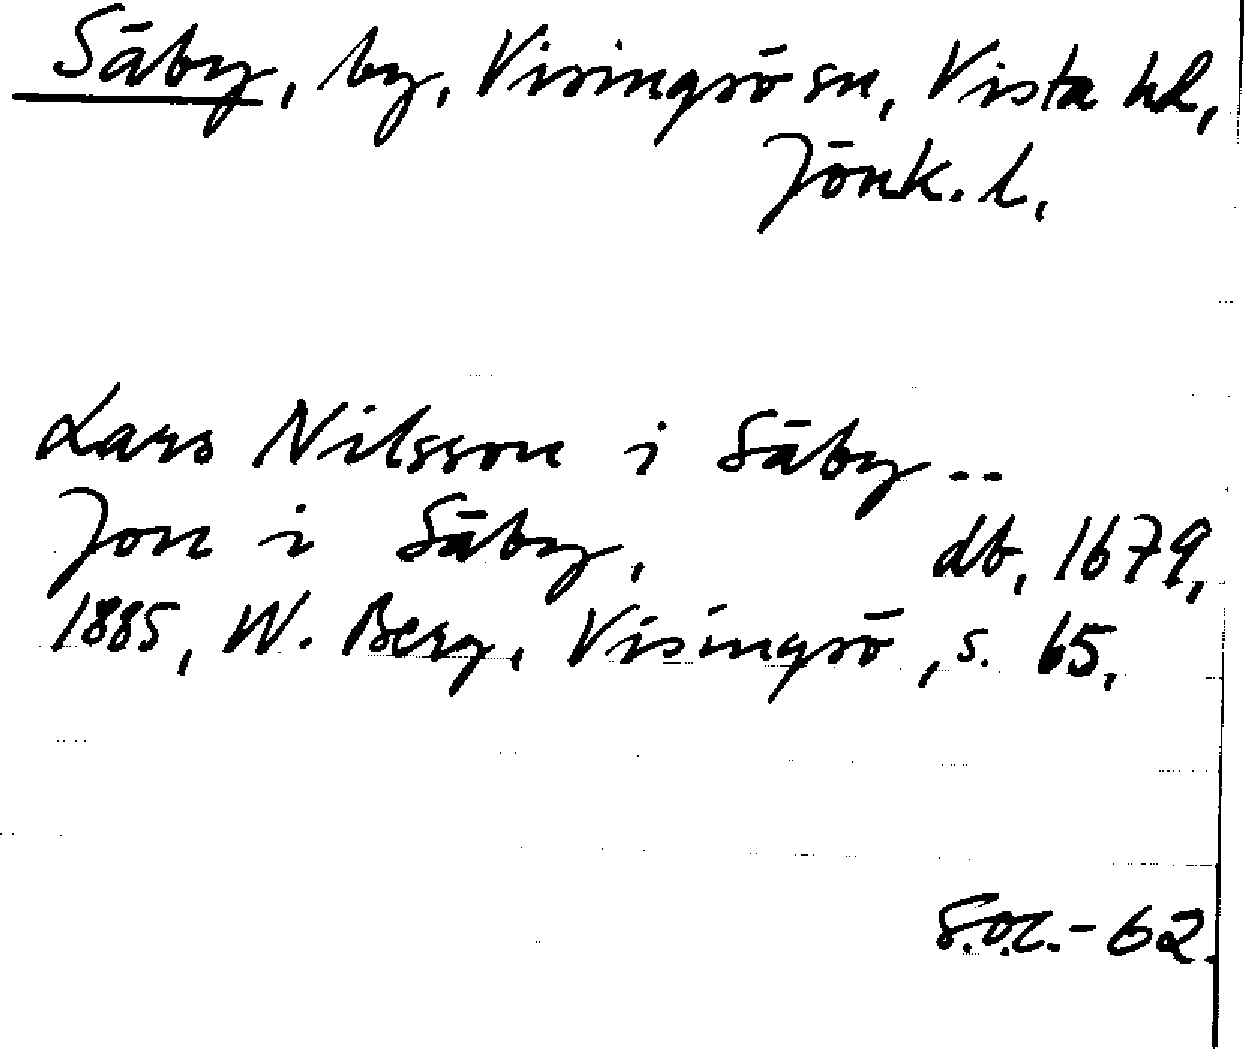 Säby, by, Visingsö sn, Vista hd,
Jönk. l.
Lars Nilsson i Säby --
Jon i Säby, db, 1679,
1885, W. Berg, Visingsö, s. 65,
S.O.L.-62.